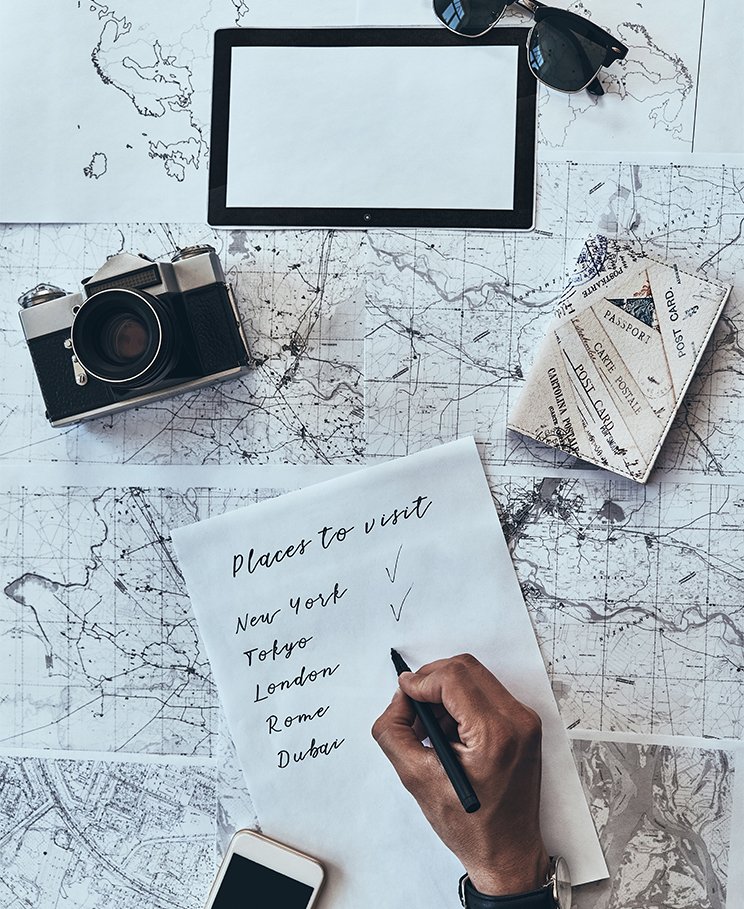 POSTKARTE
PASSPORT
POST CARD
CARTE POSTALE
POST CARD
CARTOLINA POSTALE
Places to visit
New York
Tokyo
London
Rome
Dubai